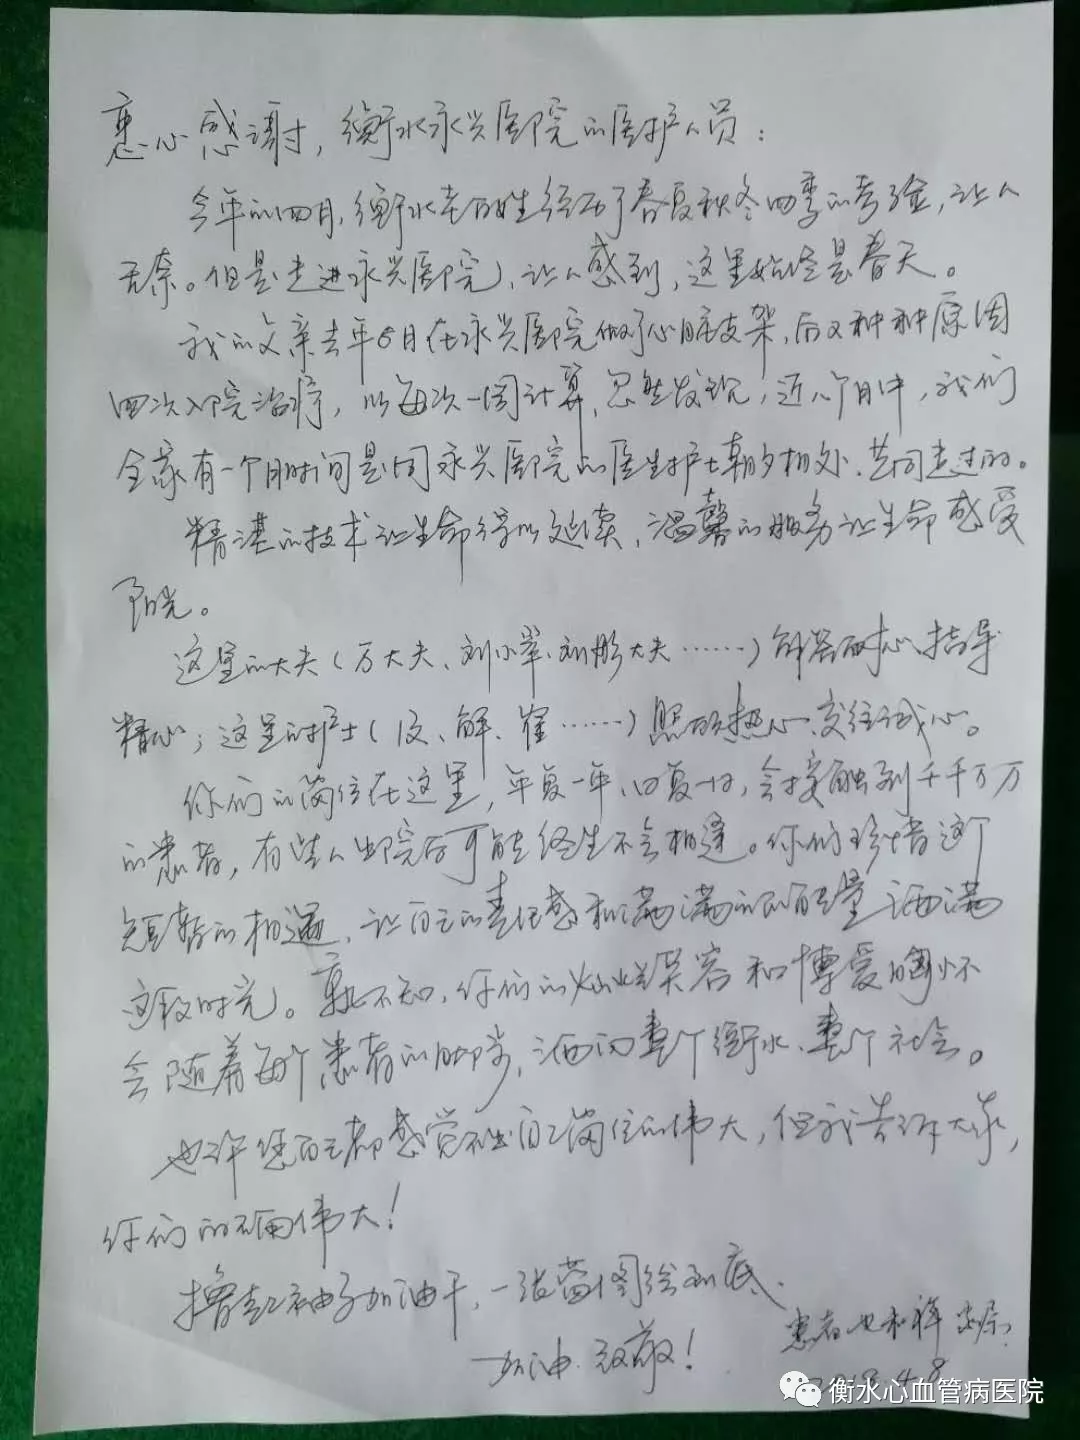 衷心感谢,衡水永兴医院的医护人员:
今年的四月,衡水老百姓经历了春夏秋冬四季的考验,让人
无奈。但是走进永兴医院,让人感到,这里始终是春天。
我的父亲去年8月在永兴医院做了心脏支架,后又种种原因
四次入院治疗,以每次一周计算,忽然发现,近八个月中,我们
全家有一个月时间是同永兴医院的医生护士朝夕相处、共同走过的。
精湛的技术让生命得以延续,温馨的服务让生命感受
阳光。
这里的大夫(万大夫、刘小翠、刘彤大夫……)解答耐心、指导
精心;这里的护士(段、解、崔……)照顾热心、交往诚心。
你们的岗位在这里,年复一年、日复一日,会接触到千千万万
的患者,有些人出院后可能终生不会相逢。你们珍惜这个
短暂的相遇,让自己的责任感和满满的正能量洒满
这段时光。孰不知,你们的灿烂笑容和博爱胸怀
会随着每个患者的脚步,洒向整个衡水、整个社会。
也许您自己都感觉不出自己岗位的伟大,但我告诉大家,
你们的确伟大!
撸起袖子加油干,一张蓝图绘到底、
加油 致敬!
患者 和祥 家属
4.8
衡水心血管病医院